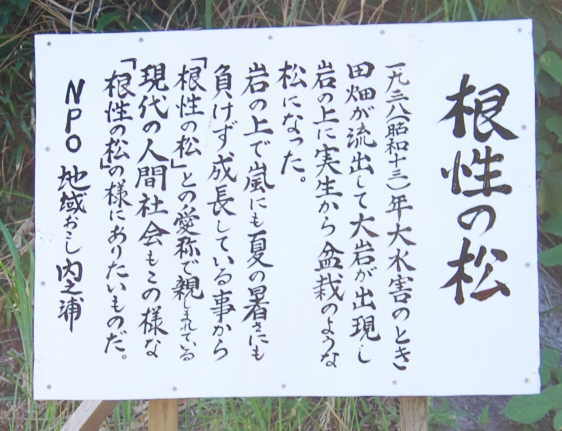 根性の松
一九三八(昭和十三)年大水害のとき
田畑が流出して大岩が出現し
岩の上に実生から盆栽のような
松になった。
岩の上で嵐にも夏の暑さにも
負けず成長している事から
「根性の松」との愛称で親しまれている
現代の人間社会もこの様な
「根性の松」の様にありたいものだ。
NPO地域おこし内之浦